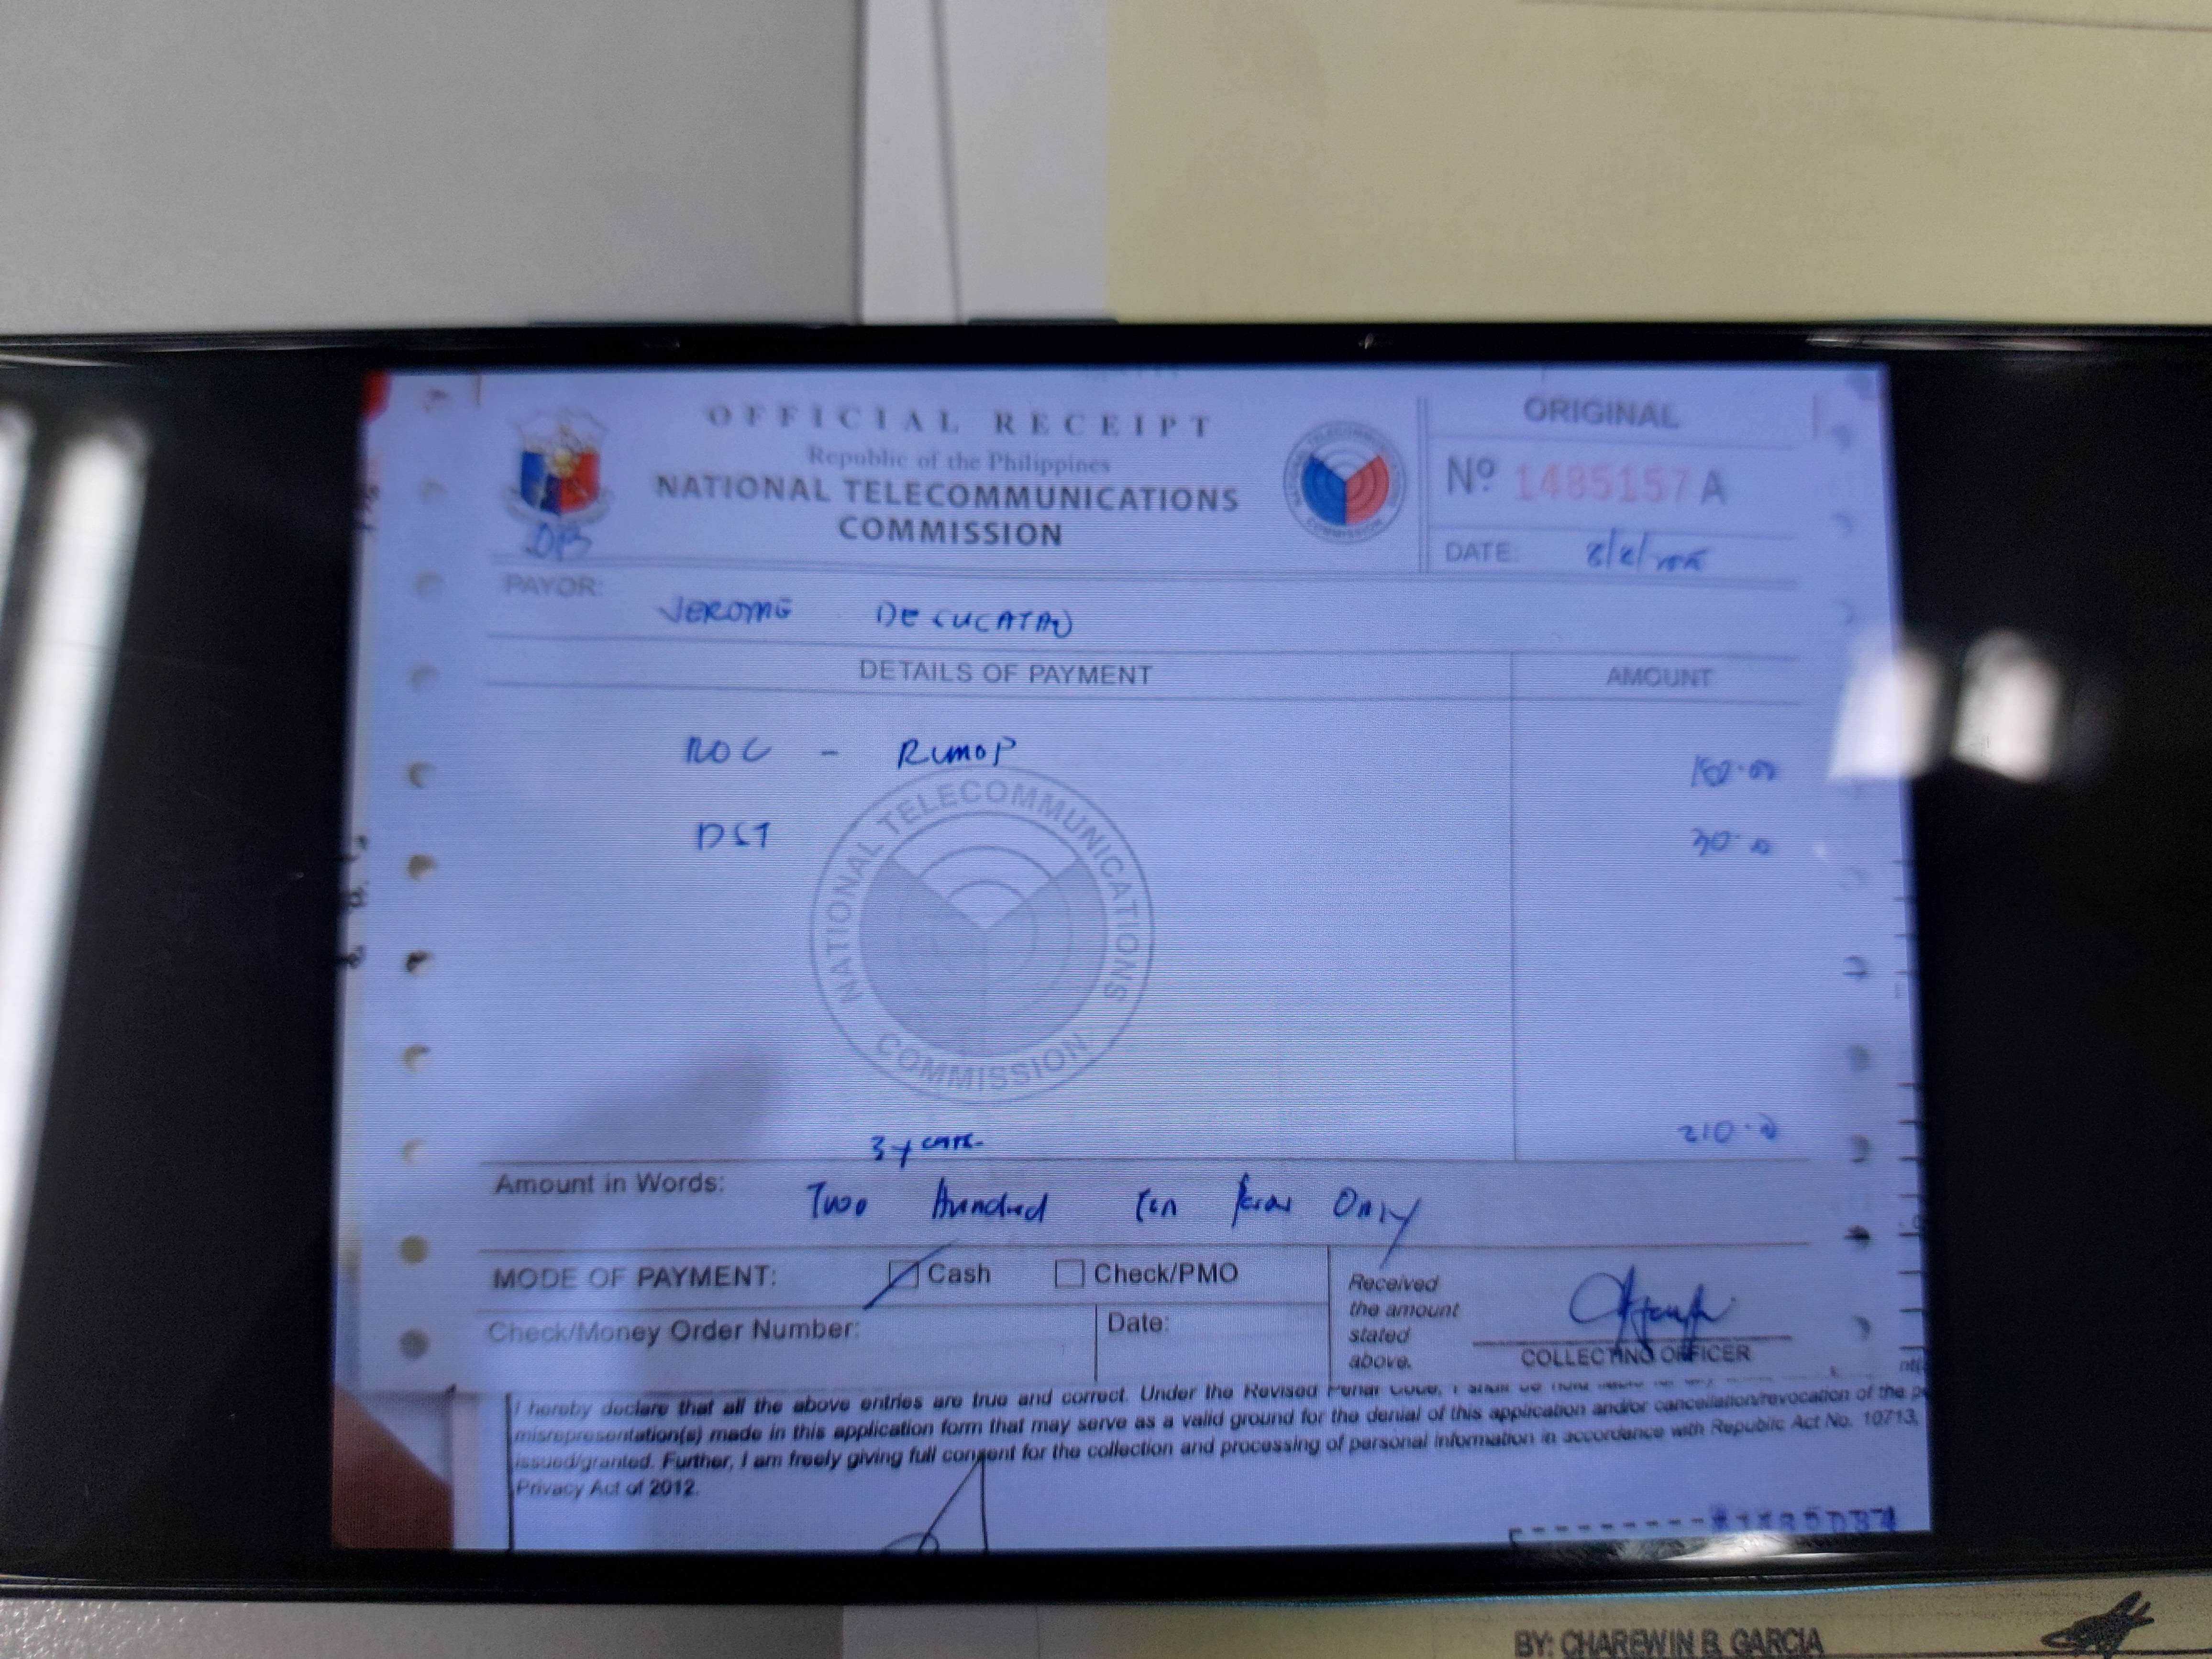 OFFICIAL RECEIPT
Republic of the Philippines
NATIONAL TELECOMMUNICATIONS
COMMISSION
ORIGINAL
Nº 1485157 A
DATE:
PAYOR: JEROME
DETAILS OF PAYMENT AMOUNT
ROC -
DST 30.0
NATIONAL TELECOMMUNICATIONS
COMMISSION
3 years 210.0
Amount in Words: Two Hundred Ten Pesos Only
MODE OF PAYMENT: Cash Check/PMO
Check/Money Order Number: Date:
Received
the amount
stated
above.
COLLECTING OFFICER
I hereby declare that all the above entries are true and correct. Under the Revised Penal Code, I shall be held
misrepresentation(s) made in this application form that may serve as a valid ground for the denial of this application and/or cancellation/revocation of the
issued/granted. Further, I am freely giving full consent for the collection and processing of personal information in accordance with Republic Act No. 10713,
Privacy Act of 2012.
BY: CHAREWIN B. GARCIA